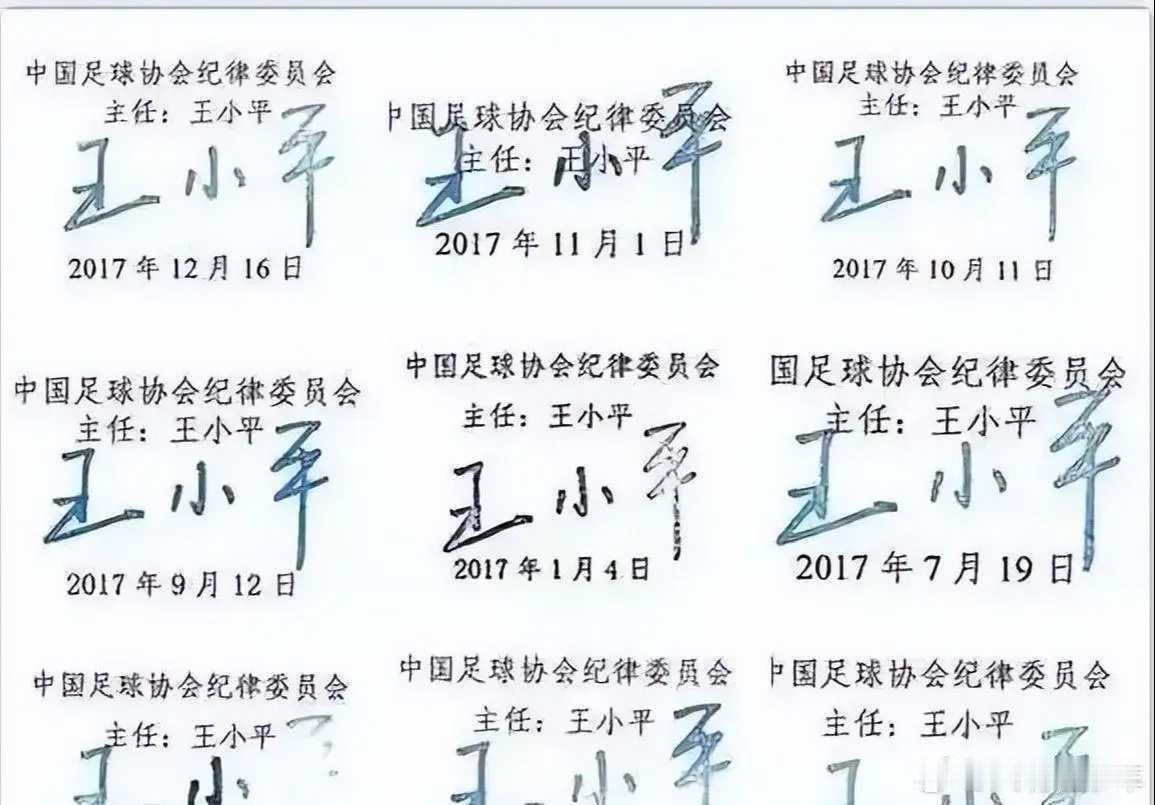 中国足球协会纪律委员会
主任：王小平
王小平
2017 年 12 月 16 日
中国足球协会纪律委员会
主任：王小平
王小平
2017 年 11 月 1 日
中国足球协会纪律委员会
主任：王小平
王小平
2017 年 10 月 11 日
中国足球协会纪律委员会
主任：王小平
王小平
2017 年 9 月 12 日
中国足球协会纪律委员会
主任：王小平
王小平
2017 年 1 月 4 日
国足球协会纪律委员会
主任：王小平
王小平
2017 年 7 月 19 日
中国足球协会纪律委员会
主任：王小平
王小
中国足球协会纪律委员会
主任：王小平
王小平
中国足球协会纪律委员会
主任：王小平
王小平